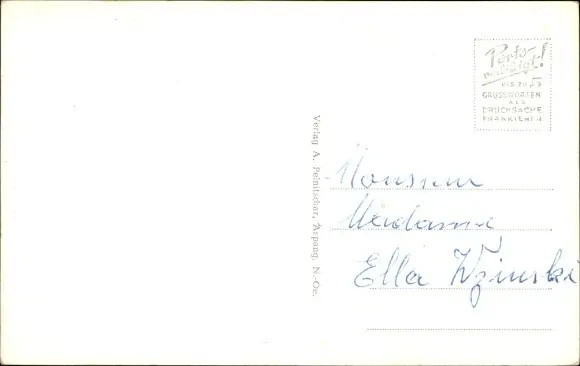 Porto-
ermäßigt!
BIS ZU 5
GRUSSWORTEN
ALS
DRUCKSACHE
FRANKIEREN
Verlag A. Pelnitschar, Aspang, N.-Oe.
Monsieur
Madame
Ella